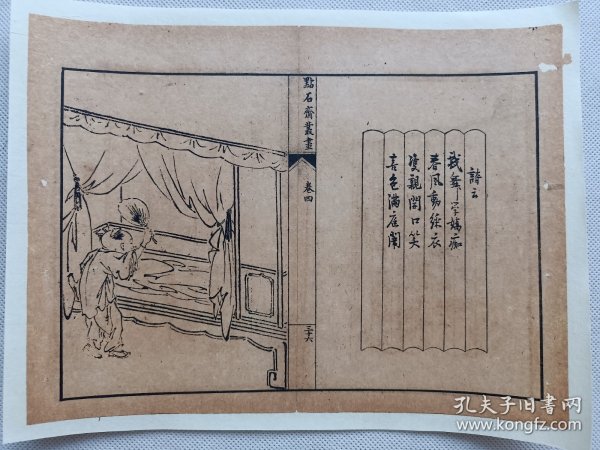 詩云
戲舞學嬌痴
春風動綵衣
雙親開口笑
喜色滿庭闈
點石齋叢畫
卷四
三十六
孔夫子旧書网
www.kongfz.com